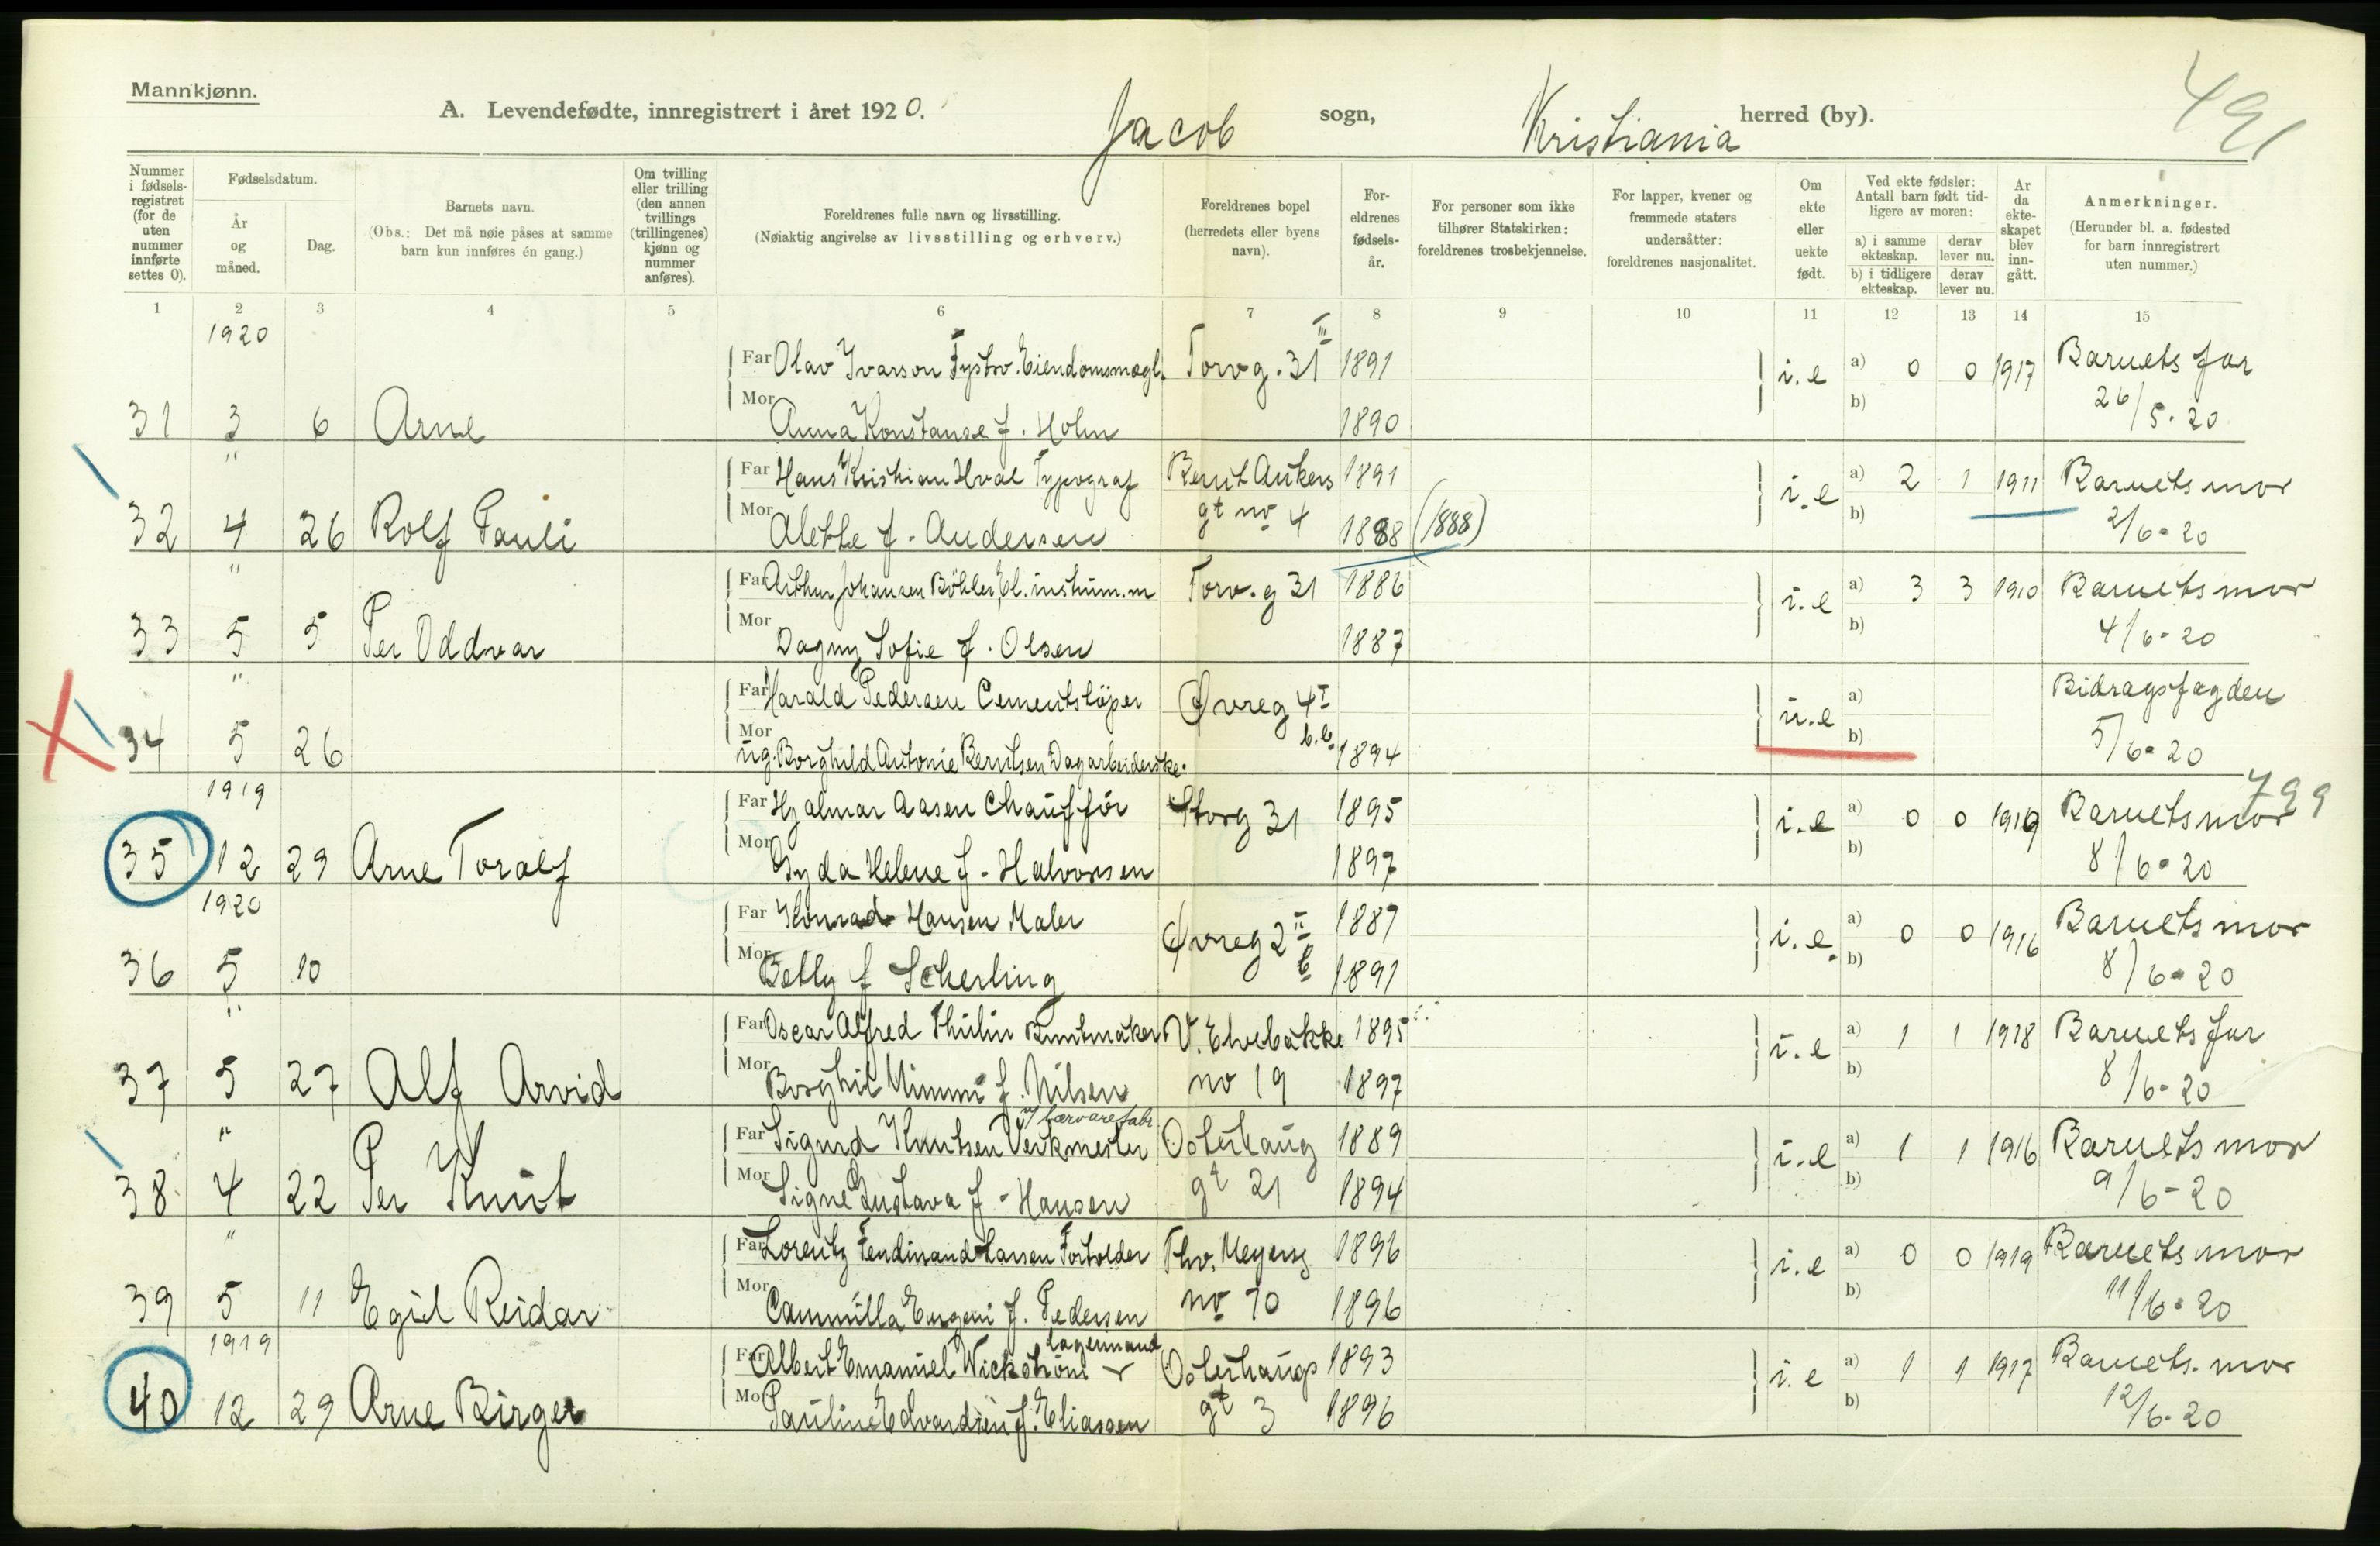 Mannkjønn.
A. Levendefødte, innregistrert i året 1920. Jacob sogn, Kristiania herred (by).
491
Nummer i fødsels-registret (for de uten nummer innførte settes 0).
Fødselsdatum.
År og måned.
Dag.
Barnets navn.
(Obs.: Det må nøie påses at samme barn kun innføres én gang.)
Om tvilling eller trilling (den annen tvillings (trillingenes) kjønn og nummer anføres).
Foreldrenes fulle navn og livsstilling.
(Nøiaktig angivelse av livsstilling og erhverv.)
Foreldrenes bopel (herredets eller byens navn).
For-eldrenes fødsels-år.
For personer som ikke tilhører Statskirken: foreldrenes trosbekjennelse.
For lapper, kvener og fremmede staters undersåtter: foreldrenes nasjonalitet.
Om ekte eller uekte født.
Ved ekte fødsler: Antall barn født tid-ligere av moren:
a) i samme ekteskap.
derav lever nu.
b) i tidligere ekteskap.
derav lever nu.
År da ekte-skapet blev inn-gått.
Anmerkninger.
(Herunder bl. a. fødested for barn innregistrert uten nummer.)
1 2 3 4 5 6 7 8 9 10 11 12 13 14 15
1920
Far Olav Ivarson Eiendomsmægl. Torvg. 31 III 1891 i.e a) 0 0 1917 Barnets far
31 3 6 Arne Mor Anna Konstanse f. Holm 1890 b) 26/5-20
" Far Hans Kristian Hval Typograf Bernt Ankers 1891 i.e a) 2 1 1911 Barnets mor
32 4 26 Rolf Pauli Mor Alette f. Andersen gt no 4 1888 (1888) b) 2/6-20
" Far Arthur Johansen Böhler, El. instrum.m Torv.g 31 1886 i.e a) 3 3 1910 Barnets mor
33 5 5 Per Oddvar Mor Dagny Sofie f. Olsen 1887 b) 4/6-20
" Far Harald Pedersen Cementstöper Øvreg 4 I u.e a) Bidragsfogden
34 5 26 Mor ug. Borghild Antonie Berntsen Dagarbeiderske. 1894 b) 5/6-20
1919 Far Hjalmar Aasen Chaufför Storg 31 1895 i.e a) 0 0 1919 Barnets mor 799
35 12 29 Arne Toralf Mor Gyda Helene f. Halvorsen 1897 b) 8/6-20
1920 Far Konrad Hansen Maler Øvreg 2 II b 1887 i.e. a) 0 0 1916 Barnets mor
36 5 10 Mor Betty f Scherling 1891 b) 8/6-20
" Far Oscar Alfred Thulin Buntmaker V. Elvebakke 1895 i.e a) 1 1 1918 Barnets far
37 5 27 Alf Arvid Mor Borghil Mimmi f. Nilsen no 19 1897 b) 8/6-20
" Far Sigurd Knutsen Verkmester v/ lærvarefabr. Osterhaug 1889 i.e a) 1 1 1916 Barnets mor
38 4 22 Per Knut Mor Signe Gustava f. Hansen gt 21 1894 b) 9/6-20
" Far Lorentz Ferdinand Larsen Forholder Thv. Meyersg 1896 i.e a) 0 0 1919 Barnets mor
39 5 11 Egil Reidar Mor Cammilla Eugeni f. Pedersen no 70 1896 b) 11/6-20
1919 Far Albert Emanuel Wickström lagermand Osterhaugs 1893 i.e a) 1 1 1917 Barnets. mor
40 12 29 Arne Birger Mor Pauline Edvardsen f. Eliassen gt 3 1896 b) 12/6-20